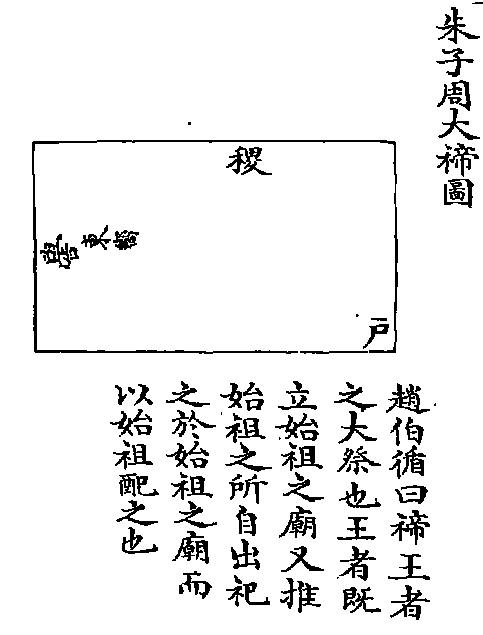 朱子周大禘圖
稷
嚳東嚮
戶
趙伯循曰禘王者
之大祭也王者既
立始祖之廟又推
始祖之所自出祀
之於始祖之廟而
以始祖配之也